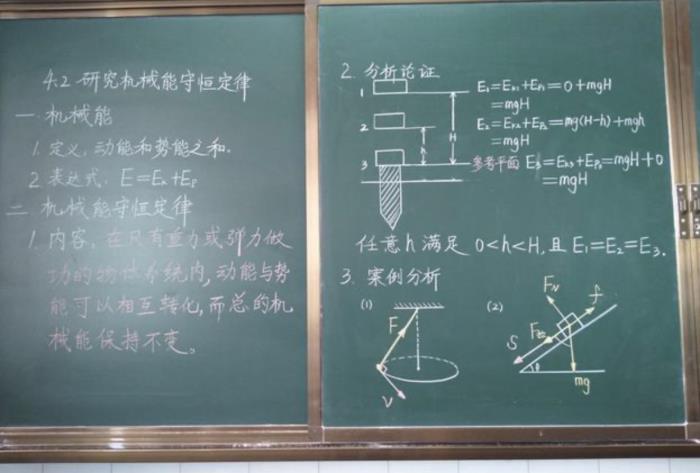 4.2 研究机械能守恒定律
一 机械能
1. 定义：动能和势能之和。
2. 表达式：E=Eₖ+Eₚ
二 机械能守恒定律
1. 内容：在只有重力或弹力做
功的物体系统内，动能与势
能可以相互转化，而总的机
械能保持不变。
2. 分析论证
1
2
3
h
H
E₁=Eₖ₁+Eₚ₁=0+mgH
=mgH
E₂=Eₖ₂+Eₚ₂=mg(H-h)+mgh
=mgH
参考平面
E₃=Eₖ₃+Eₚ₃=mgH+0
=mgH
任意h满足 0<h<H，且 E₁=E₂=E₃.
3. 案例分析
(1)
F
v
(2)
Fₙ
f
S
mg
θ